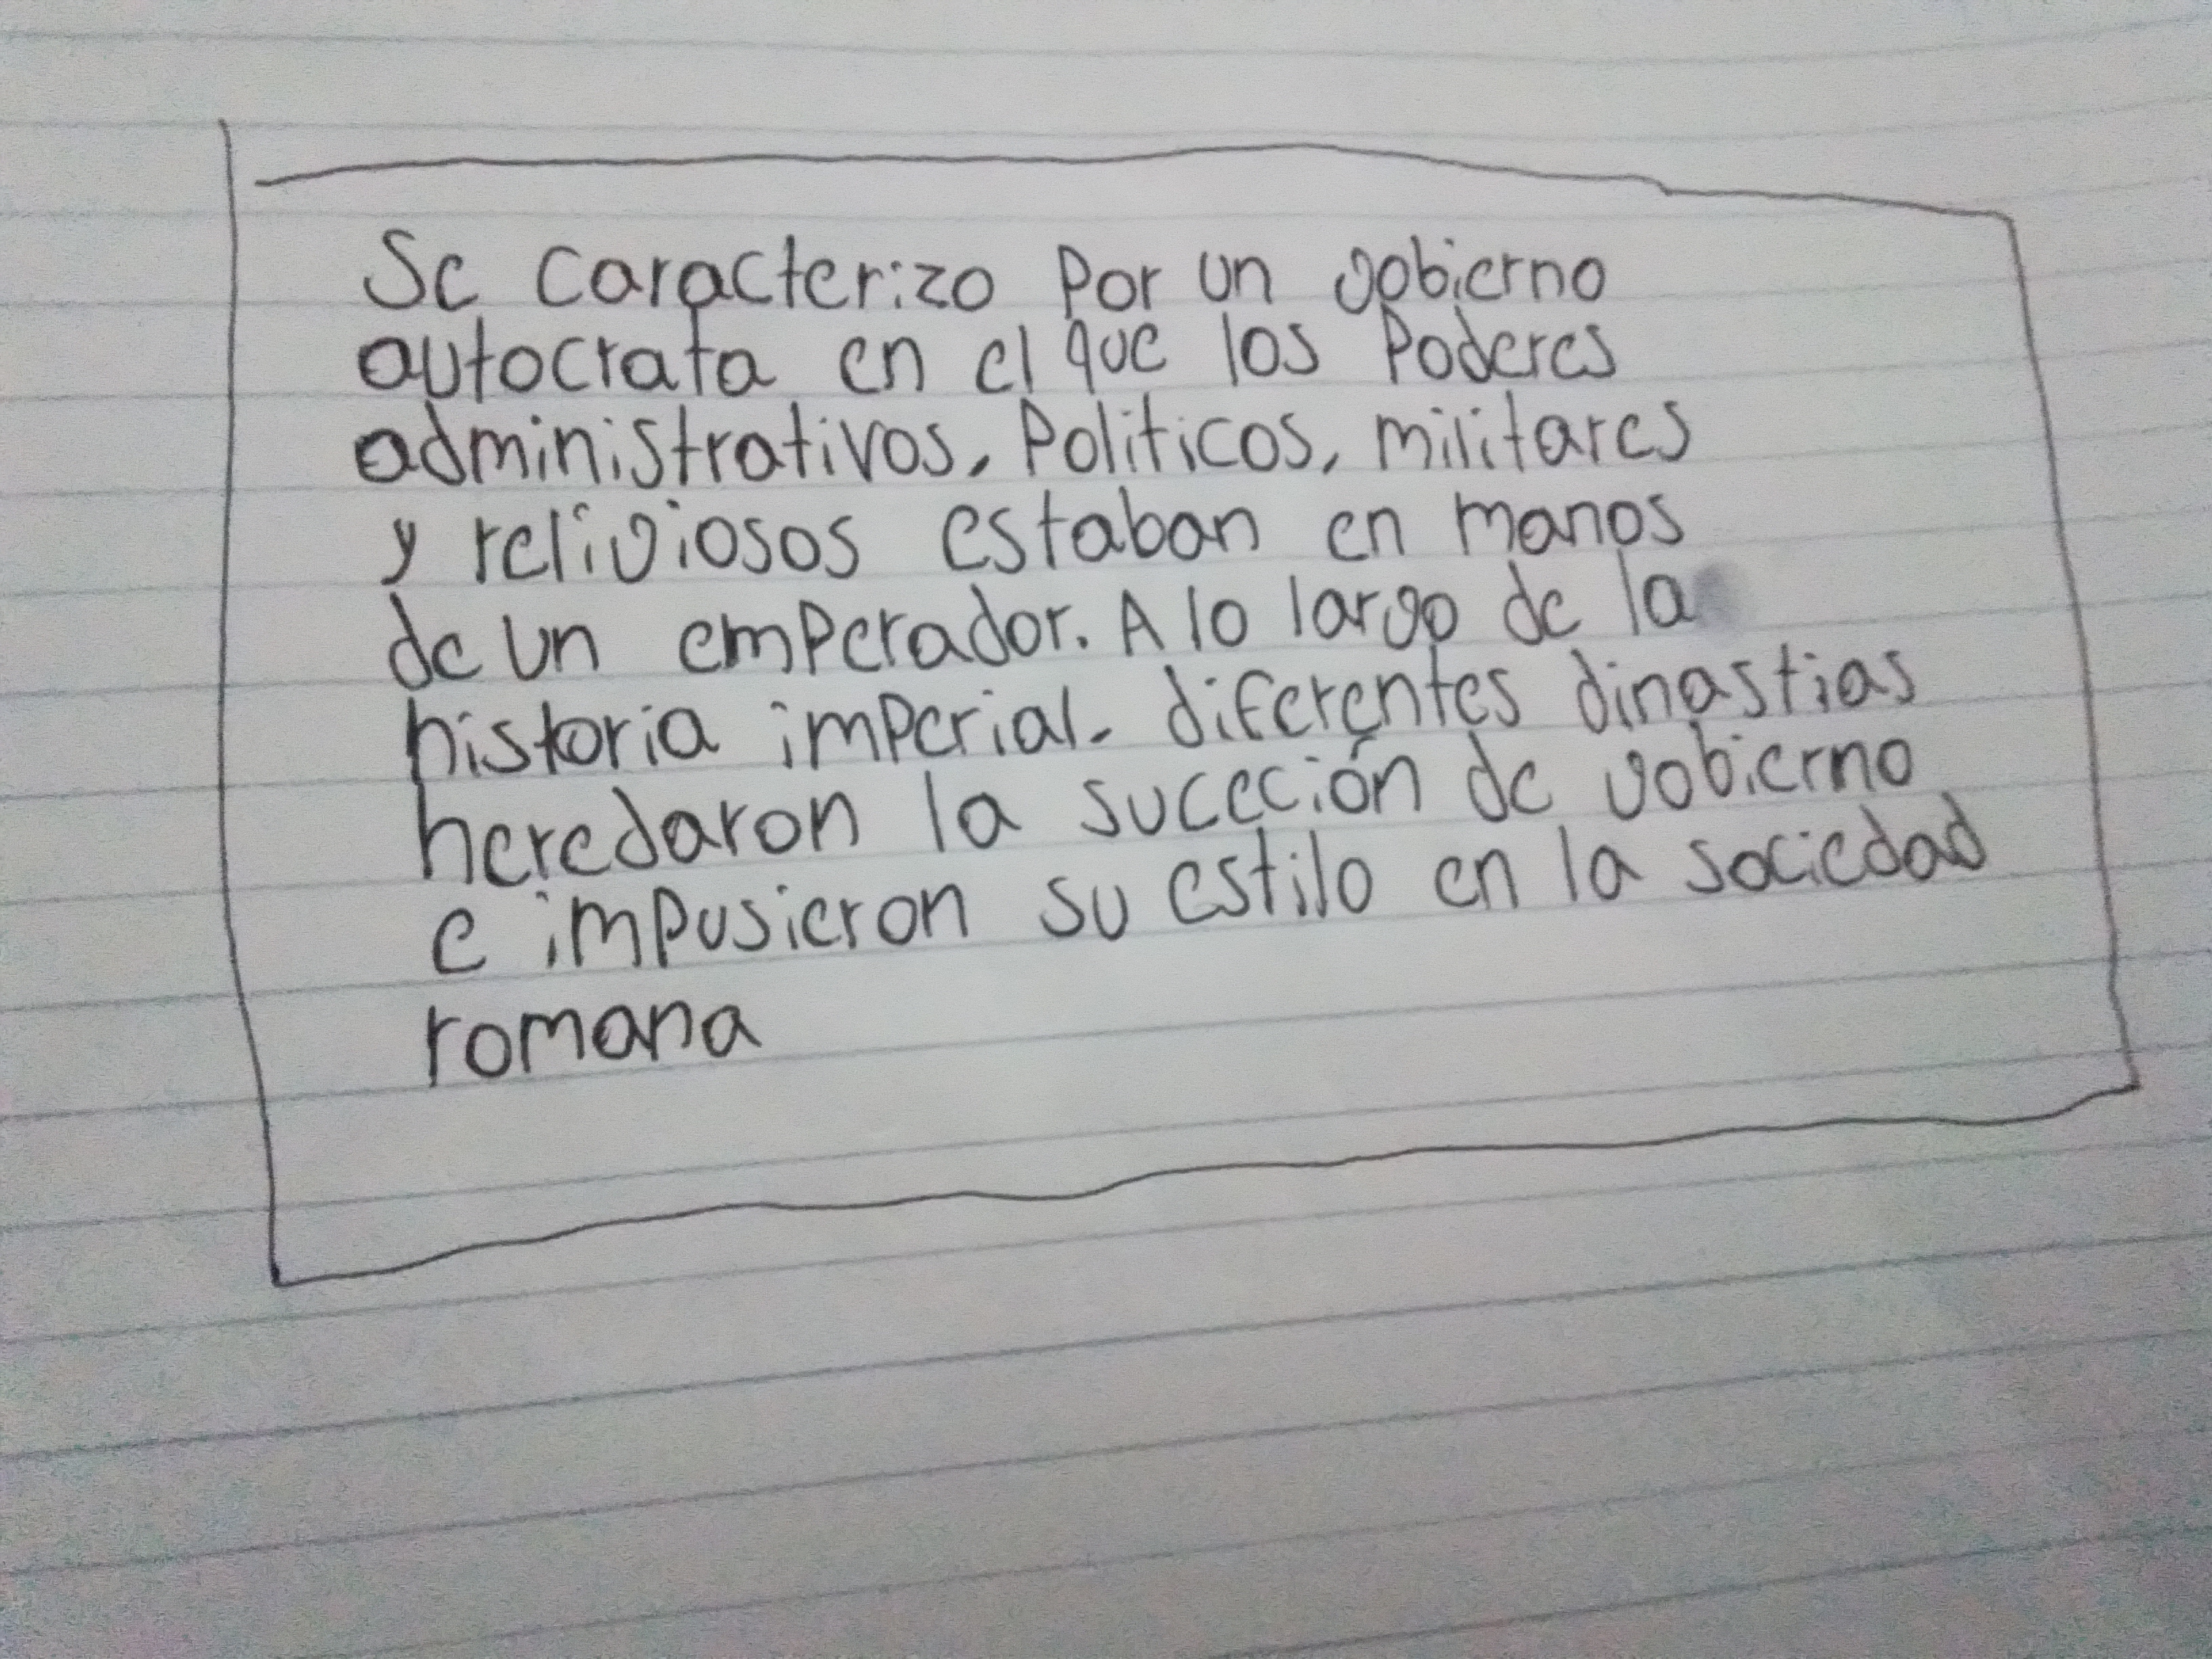 Se caracterizo Por un gobierno
autocrata en el que los Poderes
administrativos, Politicos, militares
y religiosos estaban en manos
de un emPerador. A lo largo de la
historia imPerial, diferentes dinastias
heredaron la suceción de gobierno
e imPusieron su estilo en la sociedad
romana